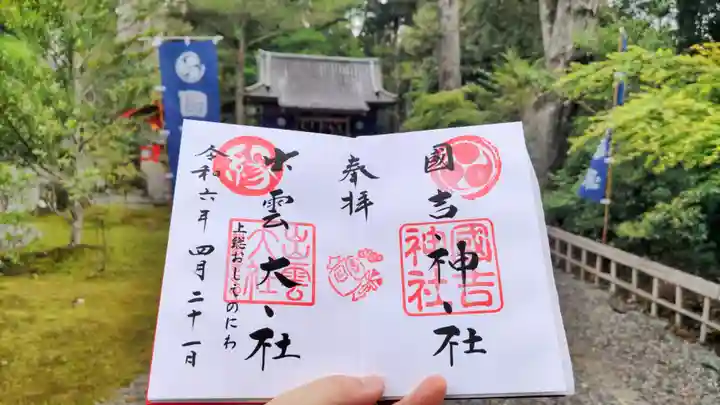 國吉神社
國吉神社
奉拝
出雲大社
出雲大社
上総おしものにわ
令和六年 四月二十一日